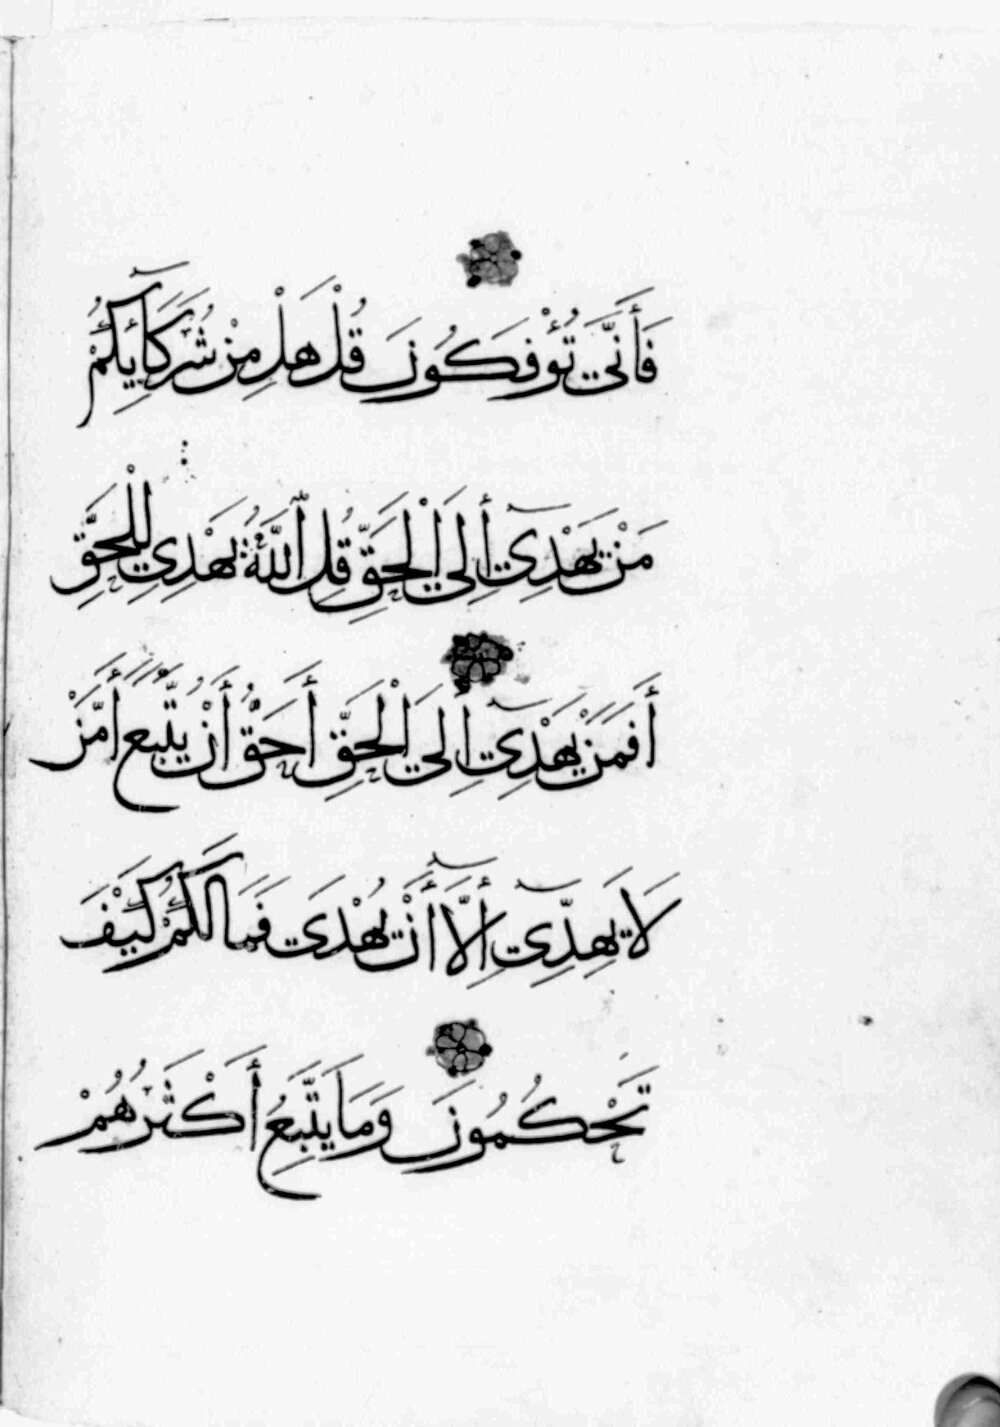 فَأَنَّىٰ تُؤْفَكُونَ قُلْ هَلْ مِنْ شُرَكَآئِكُمْ
مَنْ يَهْدِيٓ إِلَى الْحَقِّ قُلِ اللَّهُ يَهْدِي لِلْحَقِّ
أَفَمَنْ يَهْدِيٓ إِلَى الْحَقِّ أَحَقُّ أَنْ يُتَّبَعَ أَمَّنْ
لَا يَهِدِّيٓ إِلَّآ أَنْ يُهْدَى فَمَا لَكُمْ كَيْفَ
تَحْكُمُونَ وَمَا يَتَّبِعُ أَكْثَرُهُمْ